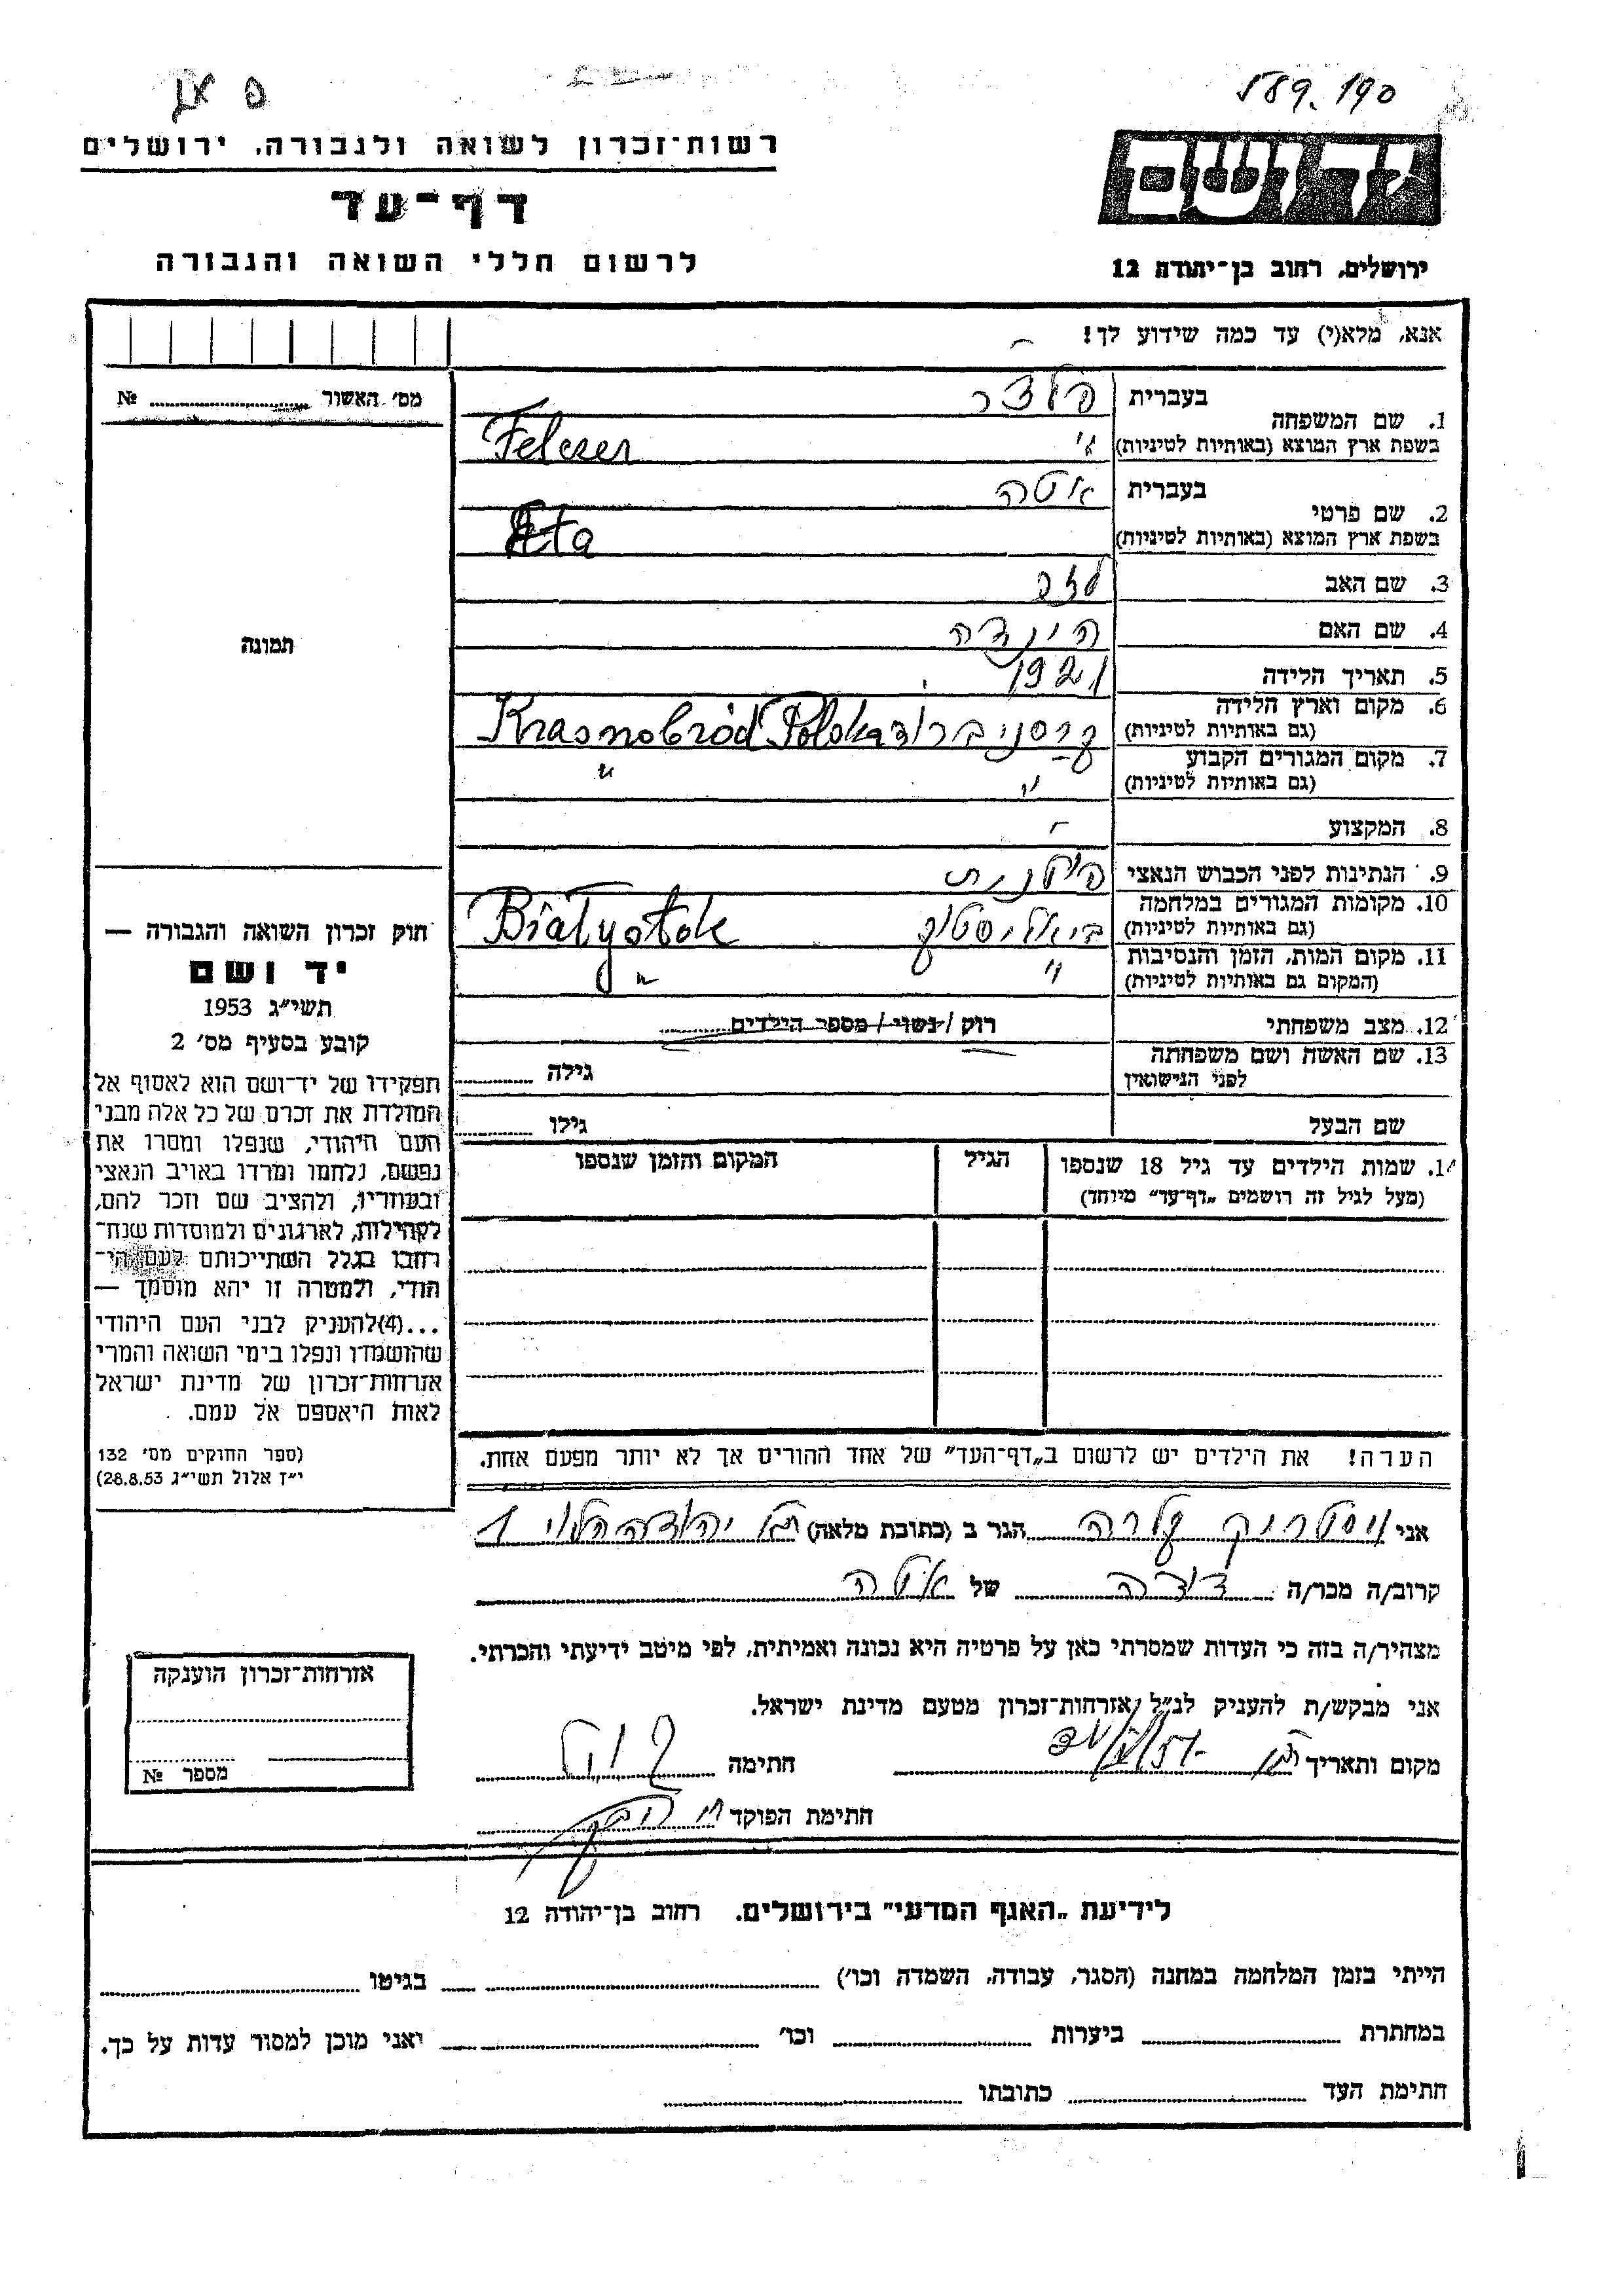 589.190
רשות־זכרון לשואה ולגבורה, ירושלים
דף־עד
לרשום חללי השואה והגבורה
יד ושם
ירושלים, רחוב בן־יהודה 12
אנא, מלא(י) עד כמה שידוע לך!
מס' האשור № ..........
תמונה
1. שם המשפחה בעברית פלצר
בשפת ארץ המוצא (באותיות לטיניות) Felczer
2. שם פרטי בעברית אטה
בשפת ארץ המוצא (באותיות לטיניות) Eta
3. שם האב
4. שם האם הינדה
5. תאריך הלידה 1921
6. מקום וארץ הלידה (גם באותיות לטיניות) קרסניברוד Krasnobród Polska
7. מקום המגורים הקבוע (גם באותיות לטיניות) " "
8. המקצוע -
9. הנתינות לפני הכבוש הנאצי פולנית
10. מקומות המגורים במלחמה (גם באותיות לטיניות) ביאליסטוק Białystok
11. מקום המות, הזמן והנסיבות (המקום גם באותיות לטיניות) " "
12. מצב משפחתי רוק / נשוי / מספר הילדים ..........
13. שם האשה ושם משפחתה לפני הנישואין גילה ..........
שם הבעל גילו ..........
14. שמות הילדים עד גיל 18 שנספו הגיל המקום והזמן שנספו
(מעל לגיל זה רושמים „דף־עד" מיוחד)
הערה! את הילדים יש לרשום ב„דף־העד" של אחד ההורים אך לא יותר מפעם אחת.
חוק זכרון השואה והגבורה —
יד ושם
תשי"ג 1953
קובע בסעיף מס' 2
תפקידו של יד־ושם הוא לאסוף אל
המולדת את זכרם של כל אלה מבני
העם היהודי, שנפלו ומסרו את
נפשם, נלחמו ומרדו באויב הנאצי
ובעוזריו, ולהציב שם וזכר להם,
לקהילות, לארגונים ולמוסדות שנח־
רבו בגלל השתייכותם לעם הי־
הודי, ולמטרה זו יהא מוסמך —
...(4) להעניק לבני העם היהודי
שהושמדו ונפלו בימי השואה והמרי
אזרחות־זכרון של מדינת ישראל
לאות היאספם אל עמם.
(ספר החוקים מס' 132
י"ז אלול תשי"ג 28.8.53)
אני ויסטריק קלרה הגר ב (כתובת מלאה) יהודה הלוי 1
קרוב/ה מכר/ה דודה של אטה
מצהיר/ה בזה כי העדות שמסרתי כאן על פרטיה היא נכונה ואמיתית, לפי מיטב ידיעתי והכרתי.
אני מבקש/ת להעניק לנ"ל אזרחות־זכרון מטעם מדינת ישראל.
מקום ותאריך
חתימה
חתימת הפוקד
אזרחות־זכרון הוענקה
מספר №
לידיעת „האגף המדעי" בירושלים, רחוב בן־יהודה 12
הייתי בזמן המלחמה במחנה (הסגר, עבודה, השמדה וכו') .......... בגיטו ..........
במחתרת .......... ביערות .......... וכו' .......... ואני מוכן למסור עדות על כך.
חתימת העד .......... כתובתו ..........